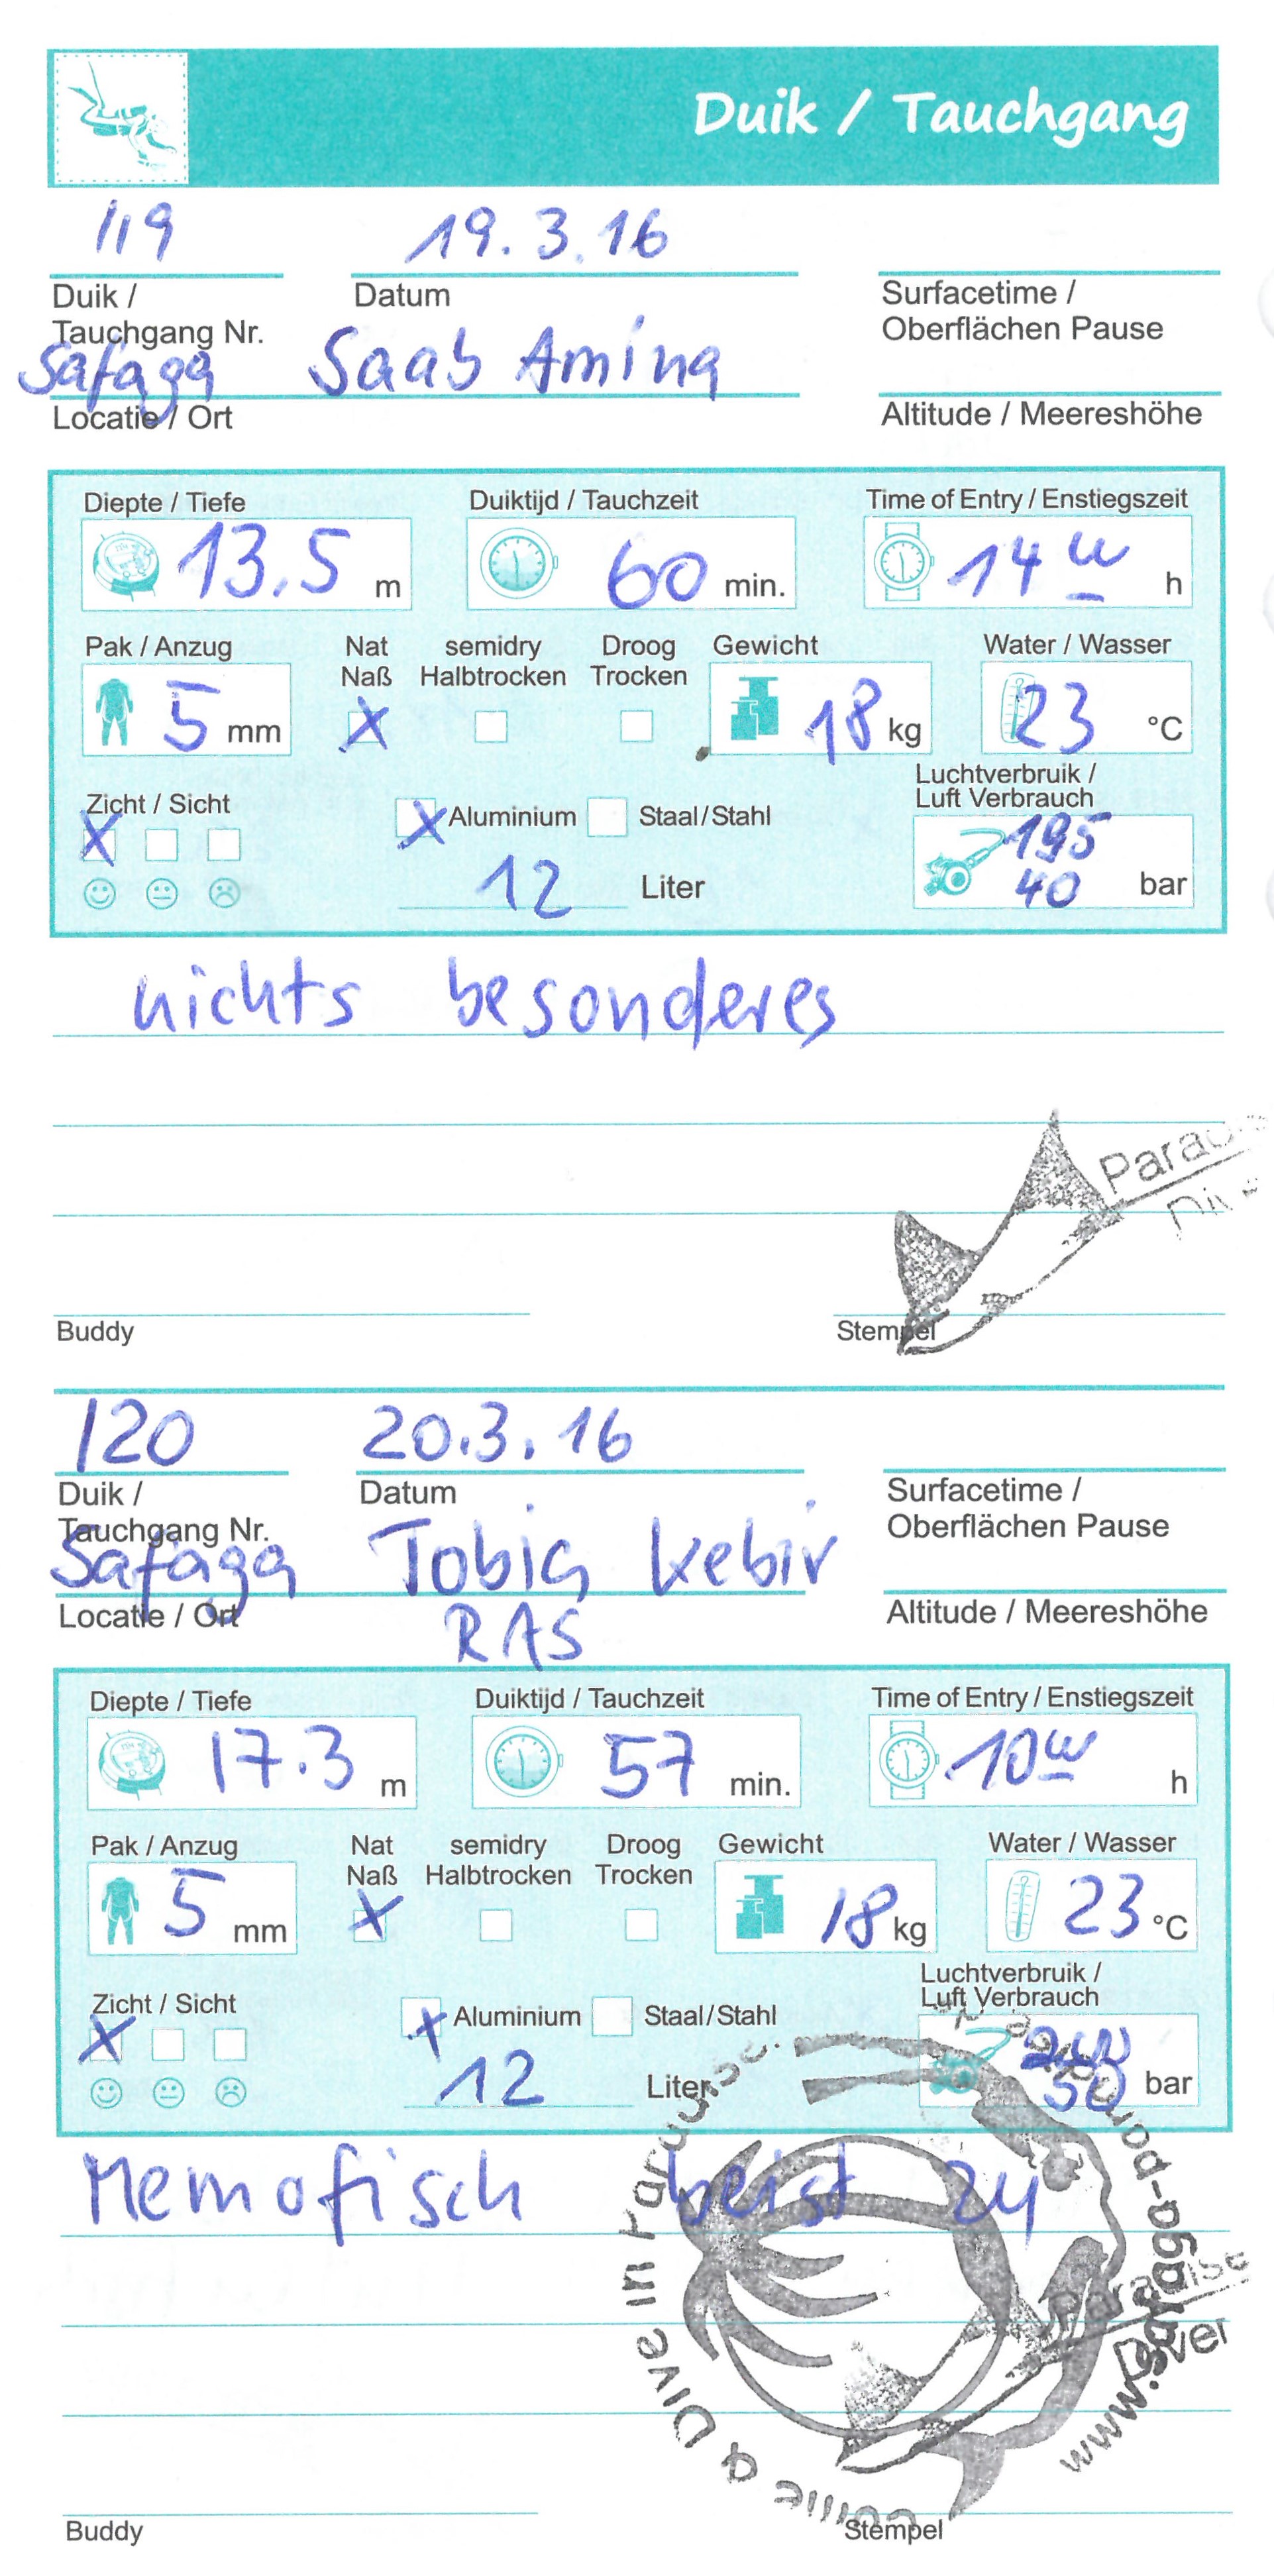 Duik / Tauchgang
119 19.3.16
Duik / Datum Surfacetime /
Tauchgang Nr. Oberflächen Pause
Safaga Saab Amina
Locatie / Ort Altitude / Meereshöhe
Diepte / Tiefe Duiktijd / Tauchzeit Time of Entry / Enstiegszeit
13.5 m 60 min. 14 00 h
Pak / Anzug Nat semidry Droog Gewicht Water / Wasser
Naß Halbtrocken Trocken
5 mm X 18 kg 23 °C
Luchtverbruik /
Zicht / Sicht Luft Verbrauch
X X Aluminium Staal/Stahl 195
12 Liter 40 bar
nichts besonderes
Div
Buddy Stempel
120 20.3.16
Duik / Datum Surfacetime /
Tauchgang Nr. Oberflächen Pause
Safaga Tobia kebir
Locatie / Ort Altitude / Meereshöhe
RAS
Diepte / Tiefe Duiktijd / Tauchzeit Time of Entry / Enstiegszeit
17.3 m 57 min. 10 00 h
Pak / Anzug Nat semidry Droog Gewicht Water / Wasser
Naß Halbtrocken Trocken
5 mm X 18 kg 23 °C
Luchtverbruik /
Zicht / Sicht Luft Verbrauch
X X Aluminium Staal/Stahl 200
12 Liter 50 bar
Nemofisch beist zu
& Dive in Paradise
Diver
Buddy Stempel